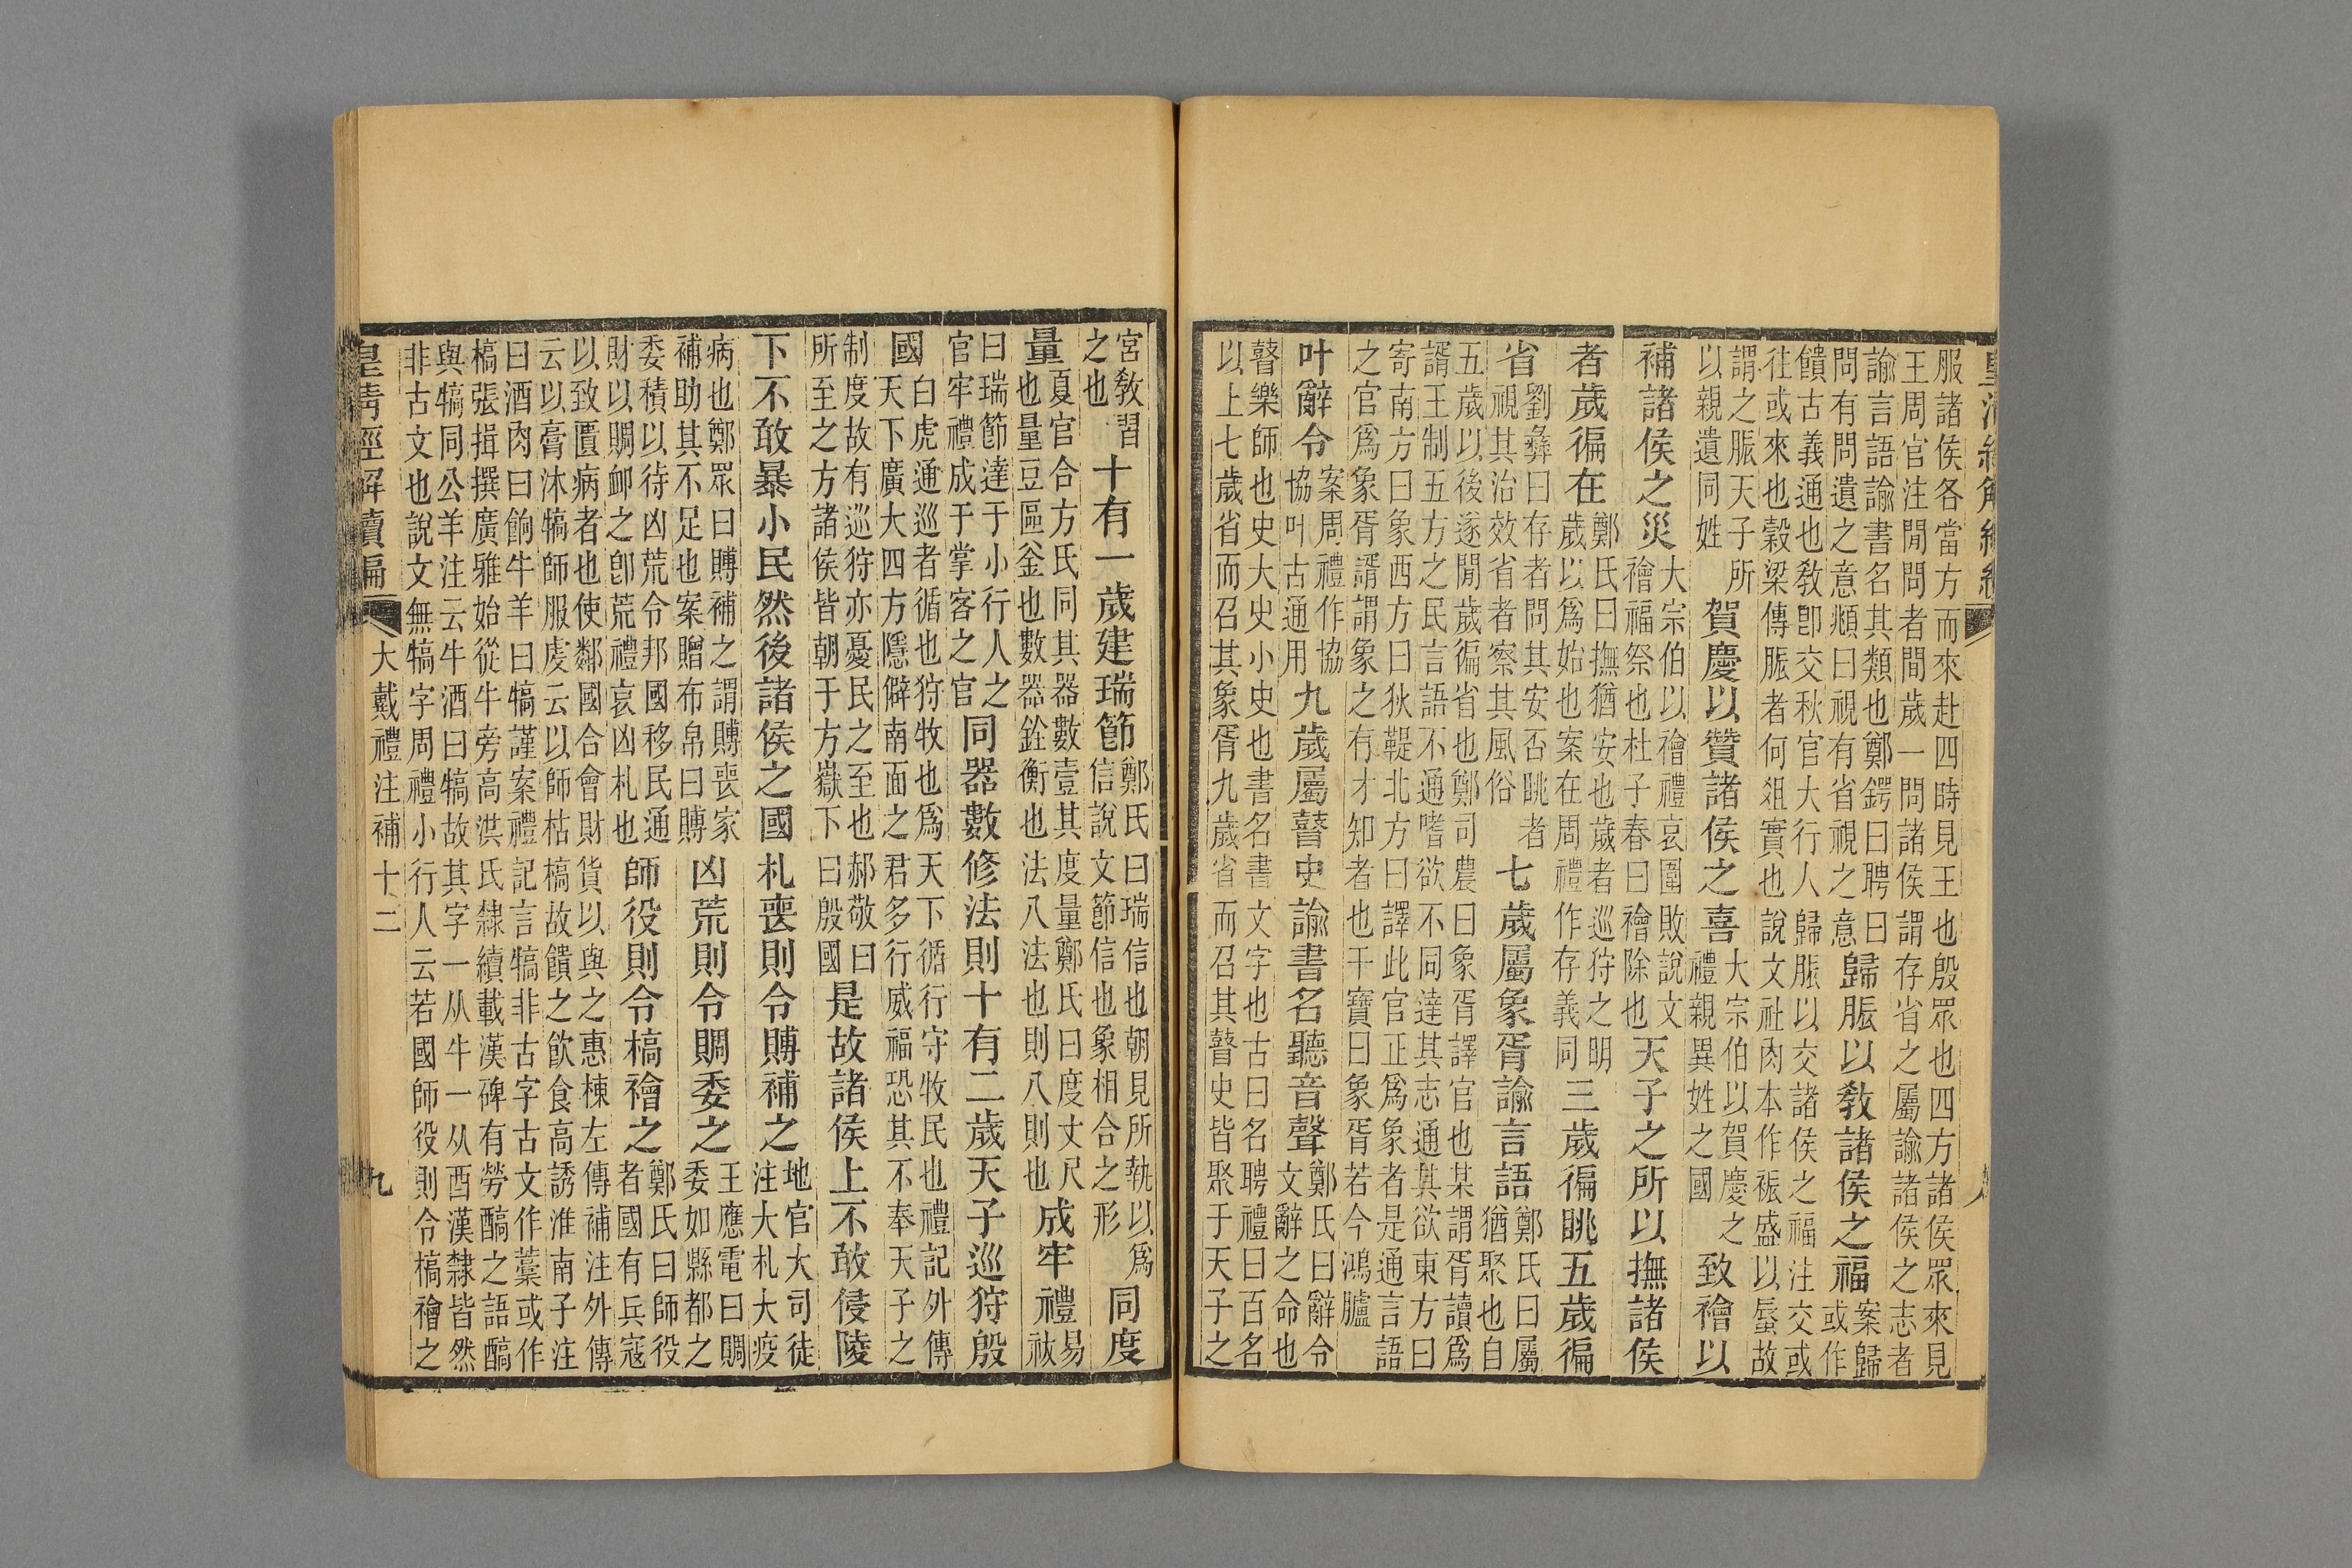 服諸侯各當方而來赴四時見王也殷眾也四方諸侯眾來見
王周官注閒問者間歲一問諸侯謂存省之屬諭諸侯之志者
諭言語諭書名其類也鄭鍔曰聘曰
問有問遺之意頫曰視有省視之意
歸脤以敎諸侯之福
案歸
或作
饋古義通也敎卽交秋官大行人歸脤以交諸侯之福注交或
往或來也穀梁傳脤者何俎實也說文社肉本作祳盛以蜃故
謂之脤天子所
以親遺同姓
賀慶以贊諸侯之喜
大宗伯以賀慶之
禮親異姓之國
致禬以
補諸侯之災
大宗伯以禬禮哀圍敗說文
禬福祭也杜子春曰禬除也
天子之所以撫諸侯
者歲徧在
鄭氏曰撫猶安也歲者巡狩之明
歲以爲始也案在周禮作存義同
三歲徧眺五歲徧
省
劉彝曰存者問其安否眺者
視其治效省者察其風俗
七歲屬象胥諭言語
鄭氏曰屬
猶聚也自
五歲以後遂閒歲徧省也鄭司農曰象胥譯官也某謂胥讀爲
諝王制五方之民言語不通嗜欲不同達其志通其欲東方曰
寄南方曰象西方曰狄鞮北方曰譯此官正爲象者是通言語
之官爲象胥諝謂象之有才知者也干寶曰象胥若今鴻臚
叶辭令
案周禮作協
協叶古通用
九歲屬瞽史諭書名聽音聲
鄭氏曰辭令
文辭之命也
瞽樂師也史大史小史也書名書文字也古曰名聘禮曰百名
以上七歲省而召其象胥九歲省而召其瞽史皆聚于天子之
宮敎習
之也
十有一歲建瑞節
鄭氏曰瑞信也朝見所執以爲
信說文節信也象相合之形
同度
量
夏官合方氏同其器數壹其度量鄭氏曰度丈尺
也量豆區釜也數器銓衡也法八法也則八則也
成牢禮
易
祓
曰瑞節達于小行人之
官牢禮成于掌客之官
同器數修法則十有二歲天子巡狩殷
國
白虎通巡者循也狩牧也爲天下循行守牧民也禮記外傳
天下廣大四方隱僻南面之君多行威福恐其不奉天子之
制度故有巡狩亦憂民之至也郝敬曰
所至之方諸侯皆朝于方嶽下曰殷國
是故諸侯上不敢侵陵
下不敢暴小民然後諸侯之國札喪則令賻補之
地官大司徒
注大札大疫
病也鄭眾曰賻補之謂賻喪家
補助其不足也案贈布帛曰賻
凶荒則令賙委之
王應電曰賙
委如縣都之
委積以待凶荒令邦國移民通
財以賙衈之卽荒禮哀凶札也
師役則令槁禬之
鄭氏曰師役
者國有兵寇
以致匱病者也使鄰國合會財貨以與之惠棟左傳補注外傳
云以膏沐犒師服虔云以師枯槁故饋之飲食高誘淮南子注
曰酒肉曰餉牛羊曰犒謹案禮記言犒非古字古文作藁或作
槁張揖撰廣雅始從牛旁高洪氏隸續載漢碑有勞之語
與犒同公羊注云牛酒曰犒故其字一从牛一从酉漢隸皆然
非古文也說文無犒字周禮小行人云若國師役則令槁禬之
皇淸經解續編
大戴禮注補十二
九